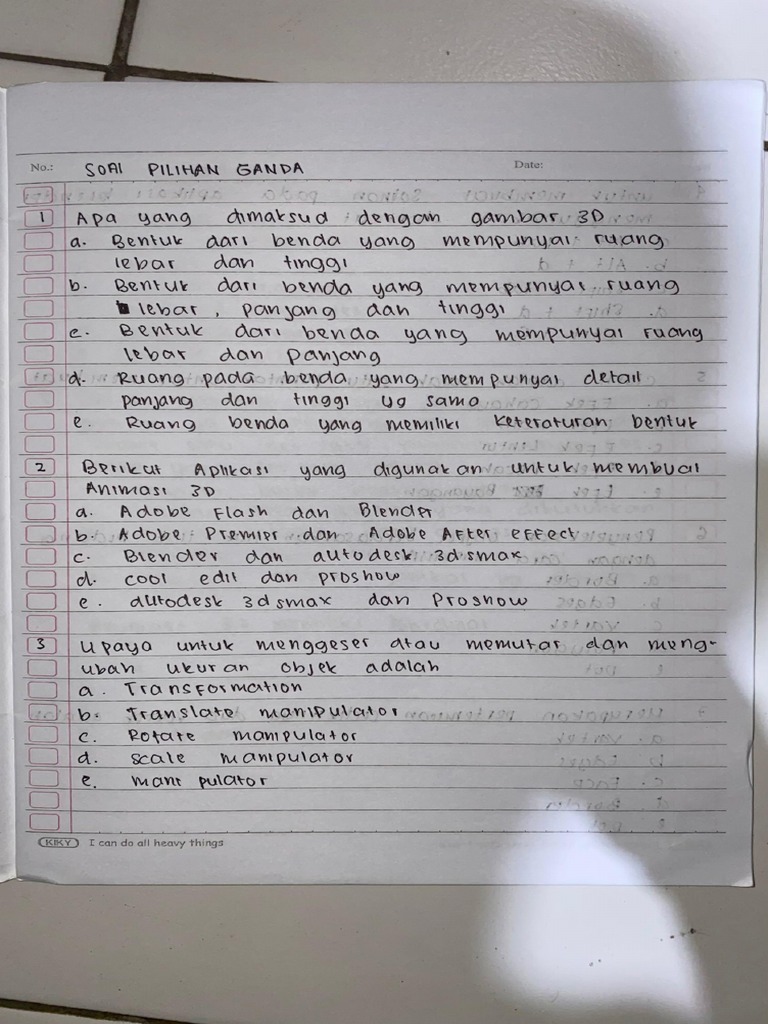 No.: SOAl PILIHAN GANDA Date:
1 Apa yang dimaksud dengan gambar 3D
a. Bentuk dari benda yang mempunyai ruang
lebar dan tinggi
b. Bentuk dari benda yang mempunyai ruang
lebar, panjang dan tinggi
c. Bentuk dari benda yang mempunyai ruang
lebar dan panjang
d. Ruang pada benda yang mempunyai detail
panjang dan tinggi yg sama
e. Ruang benda yang memiliki keteraturan bentuk
2 Berikut Aplikasi yang digunakan untuk membuat
Animasi 3D
a. Adobe Flash dan Blender
b. Adobe Premier dan Adobe After effect
c. Blender dan autodesk 3dsmax
d. cool edit dan proshow
e. autodesk 3dsmax dan Proshow
3 Upaya untuk menggeser atau memutar dan meng-
ubah ukuran objek adalah
a. Transformation
b. Translate manipulator
c. Rotate manipulator
d. scale manipulator
e. manipulator
KIKY I can do all heavy things